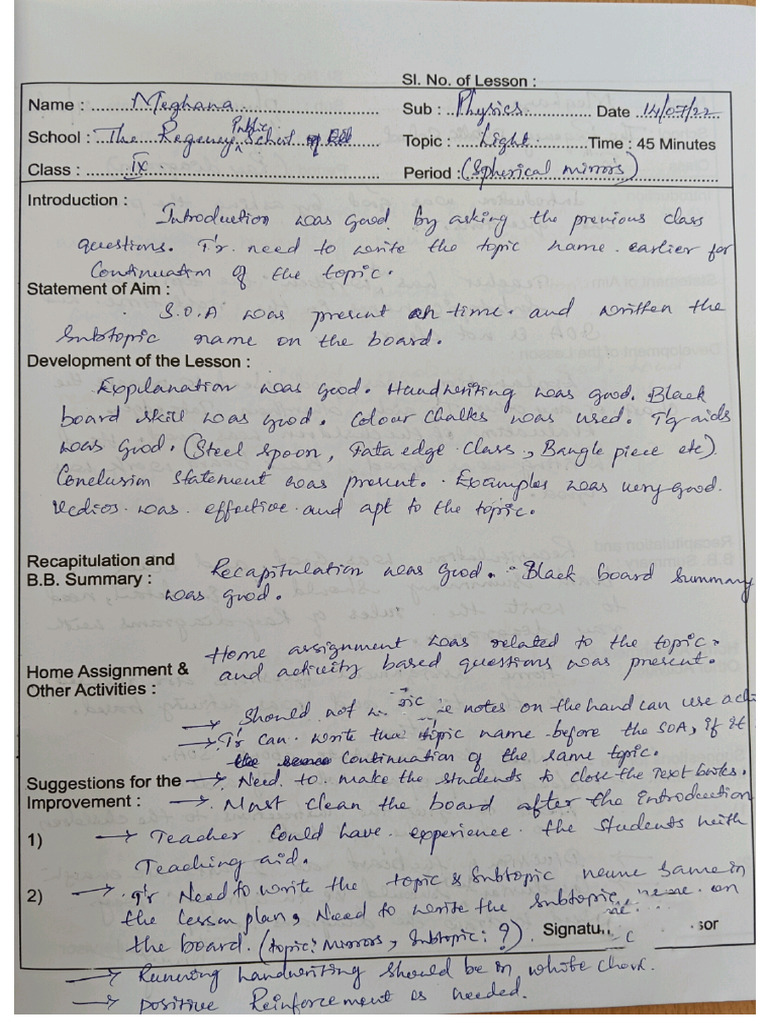 Sl. No. of Lesson :
Name : Meghana Sub : Physics Date 14/07/22
School : The Regency Public School Topic : Light Time : 45 Minutes
Class : IX Period : (Spherical mirrors)
Introduction :
Introduction was good by asking the previous class
questions. T'r. need to write the topic name earlier for
Continuation of the topic.
Statement of Aim :
S.O.A was present on time. and written the
Subtopic name on the board.
Development of the Lesson :
Explanation was good. Handwriting was good. Black
board skill was good. Colour Chalks was used. T'g aids
was good. (Steel spoon, Fata edge class, Bangle piece etc)
Conclusion statement was present. Examples was very good.
Vedios was effective and apt to the topic.
Recapitulation and
B.B. Summary :
Recapitulation was good. Black board Summary
was good.
Home assignment was related to the topic.
and activity based questions was present.
Home Assignment &
Other Activities :
→ Should not notes on the hand can use
→ T'r can write the topic name before the SOA, if it
Continuation of the same topic.
Suggestions for the
Improvement :
→ Need to make the students to close the Text books.
→ Must clean the board after the introduction
1)
→ Teacher could have experience the students with
Teaching aid.
2)
→ T'r Need to write the topic & Subtopic name same in
the lesson plan, Need to write the subtopic name on
the board. (topic: mirrors, Subtopic: ?).
→ Running handwriting should be in white chark.
→ positive Reinforcement is needed.